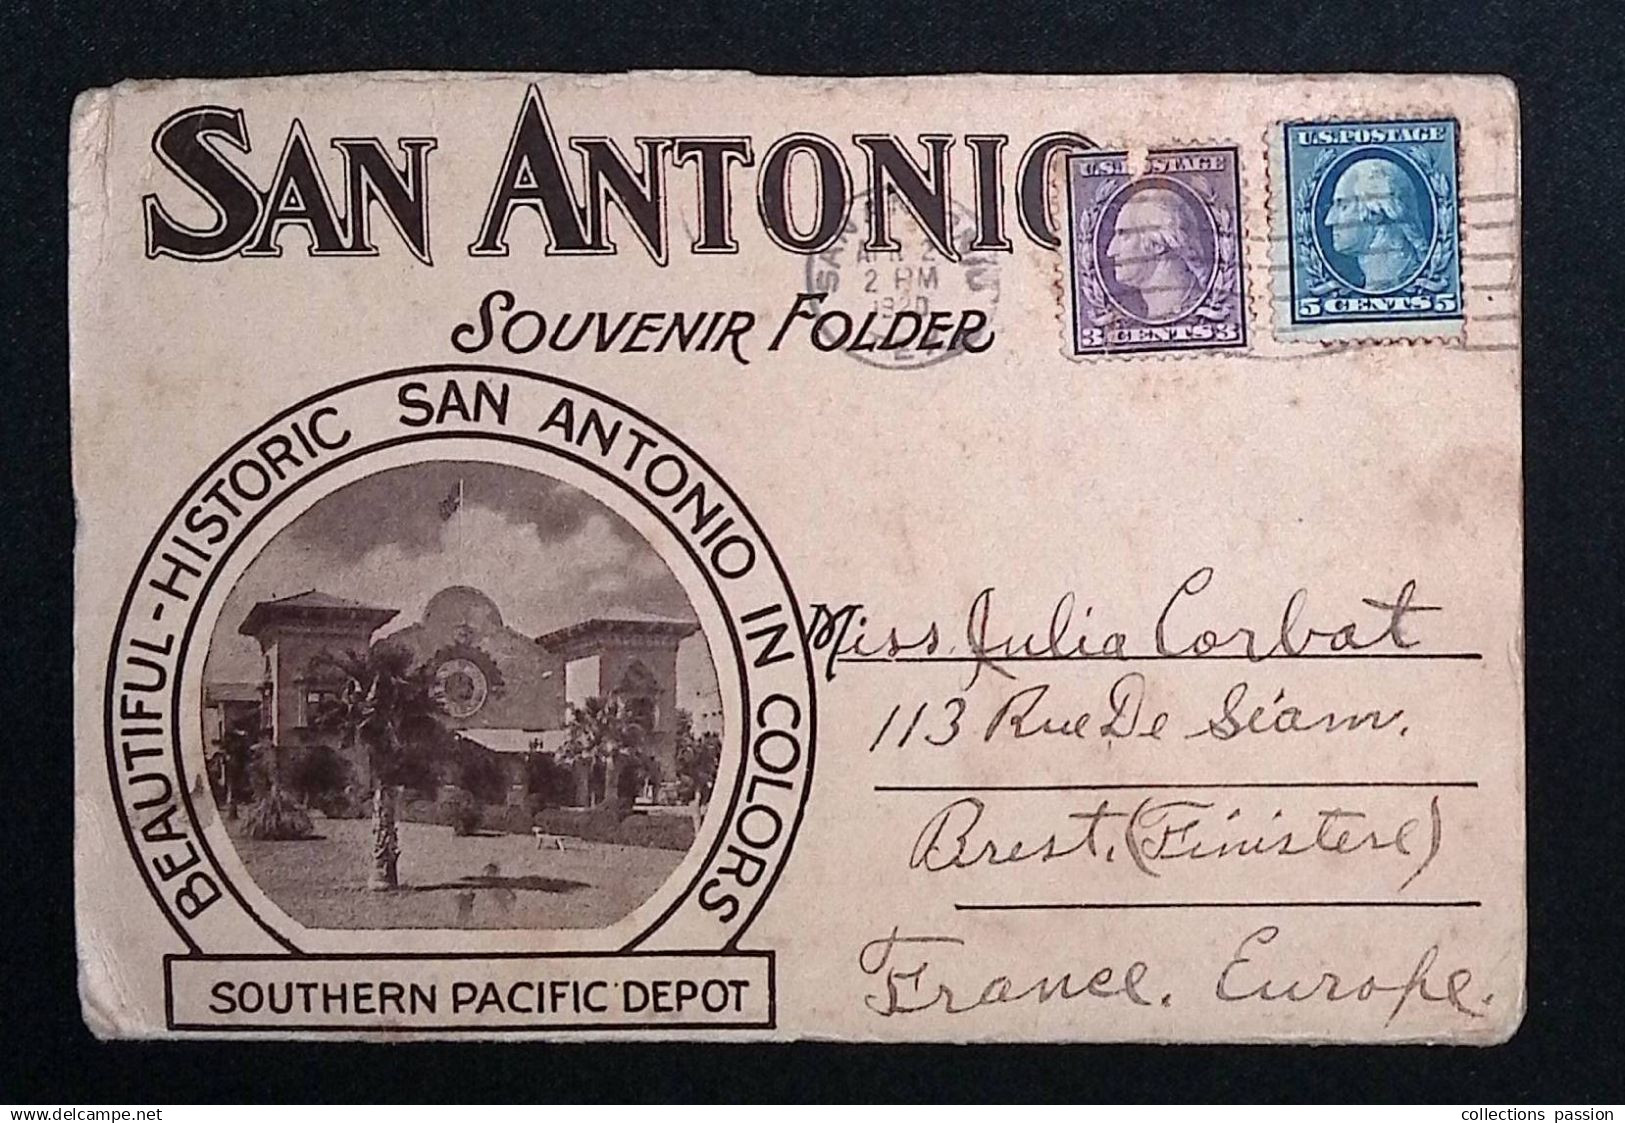 SAN ANTONIO
U.S. POSTAGE
3 CENTS 3
U.S. POSTAGE
5 CENTS 5
SAN ANTONIO
APR 2
2 PM
1920
TEX
SOUVENIR FOLDER
BEAUTIFUL-HISTORIC SAN ANTONIO IN COLORS
SOUTHERN PACIFIC DEPOT
Miss Julia Corbat
113 Rue De Séam.
Brest. (Finistere)
France. Europe.
delcampe.net
collections passion